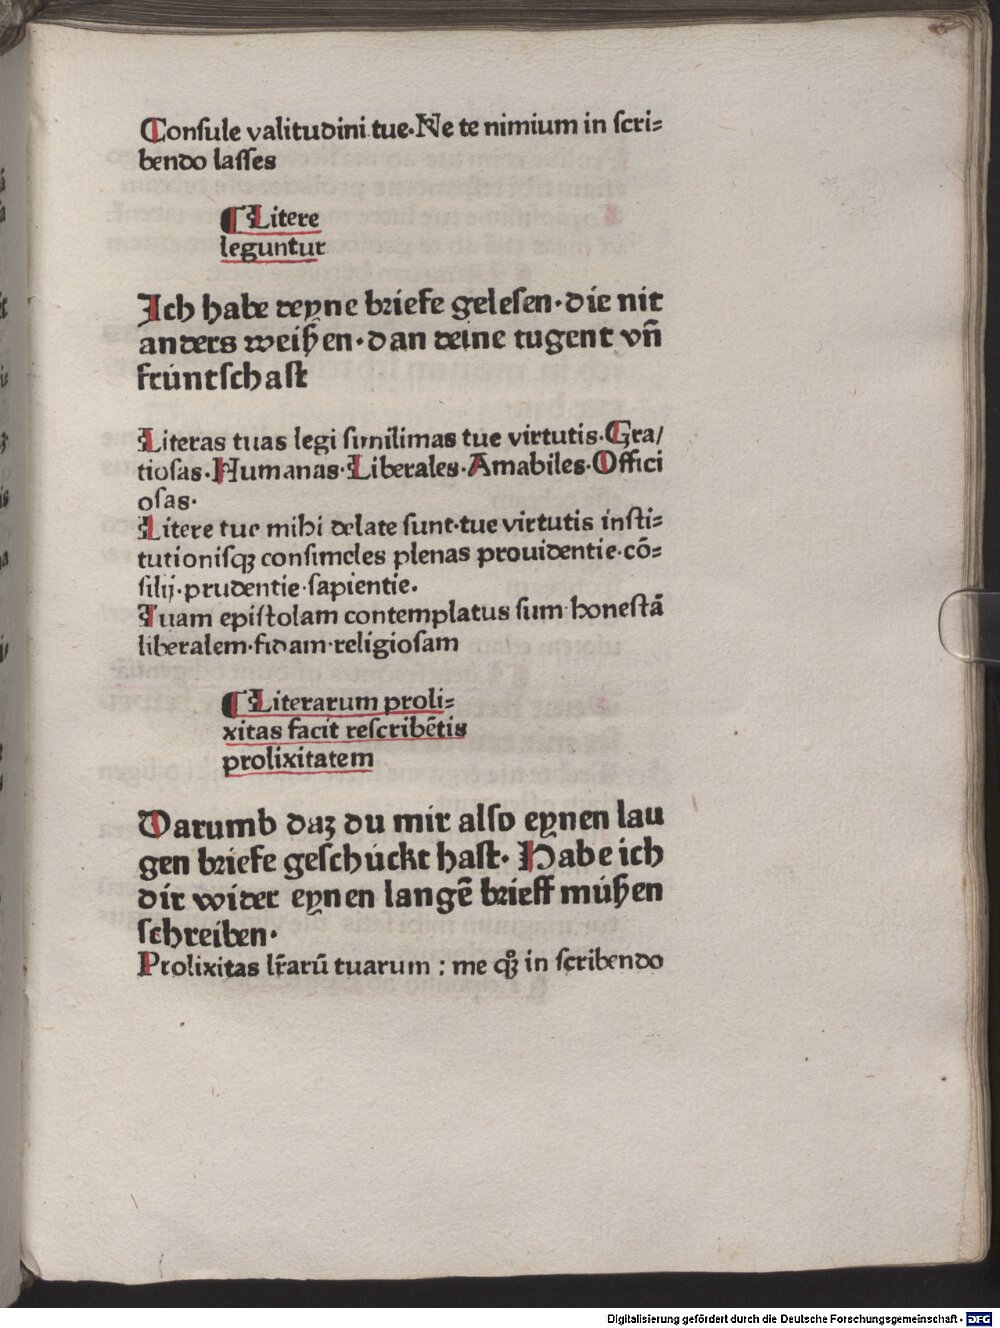 Consule valitudini tue. Ne te nimium in scri=
bendo lasses
¶ Litere
leguntur
Ich habe deyne briefe gelesen. die nit
anders weißen. dan deine tugent vn̄
fruntschafft
Literas tuas legi similimas tue virtutis. Gra/
tiosas. Humanas. Liberales. Amabiles. Offici
osas.
Litere tue mihi delate sunt. tue virtutis insti=
tutionisqꝫ consimeles plenas prouidentie. cō=
silij. prudentie. sapientie.
Tuam epistolam contemplatus sum honestā
liberalem. fidam. religiosam
¶ Literarum proli=
xitas facit rescribētis
prolixitatem
Darumb daz du mir also eynen lau
gen briefe geschückt hast. Habe ich
dir wider eynen langē brieff müßen
schreiben.
Prolixitas lr̄arū tuarum : me qꝫ in scribendo
Digitalisierung gefördert durch die Deutsche Forschungsgemeinschaft - DFG